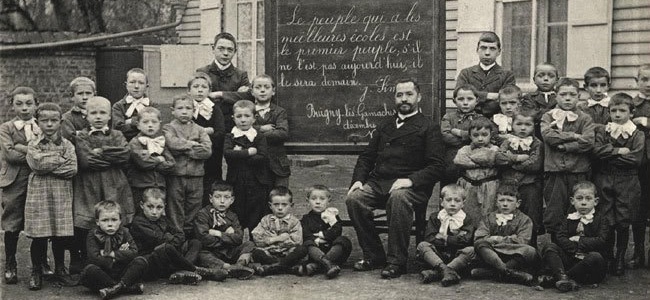 Le peuple qui a les
meilleures écoles, est
le premier peuple, s'il
ne l'est pas aujourd'hui, il
le sera demain.
J. Sim
Buigny-les-Gamaches
décembre